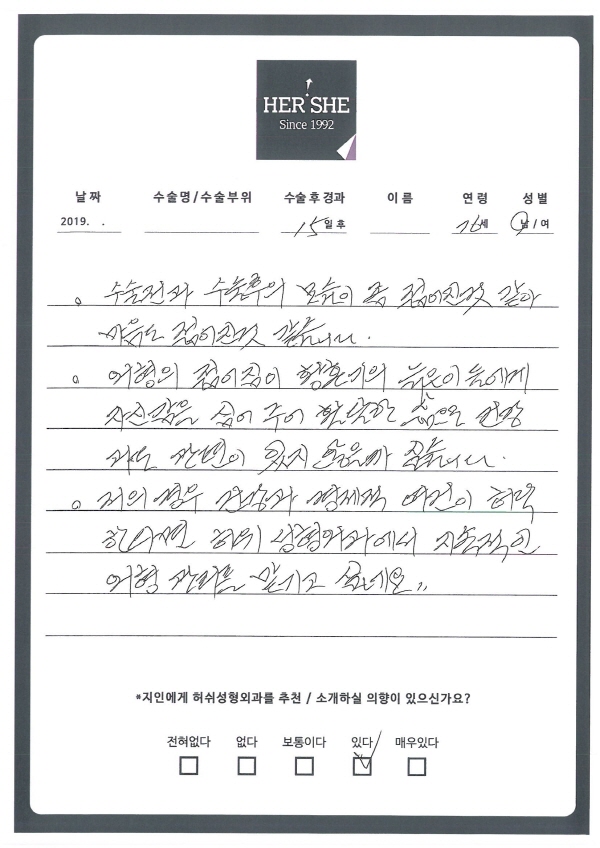 HER SHE
Since 1992
날짜 수술명/수술부위 수술 후 경과 이름 연령 성별
2019. . 15일 후 76세 남/여
。 수술전과 수술후의 모습이 좀 젊어진것 같아
마음도 젊어진것 같습니다.
。 외형의 젊어짐이 황혼기의 늙은이들에게
자신감을 심어 주어 활달한 삶으로 건강
과도 관련이 있지 않을까 싶습니다.
。 저의 경우 경제적 여건이 허락
한다면 허쉬 성형외과에서 지속적인
외형 관리를 맡기고 싶네요.,
*지인에게 허쉬성형외과를 추천 / 소개하실 의향이 있으신가요?
전혀없다 없다 보통이다 있다 매우있다